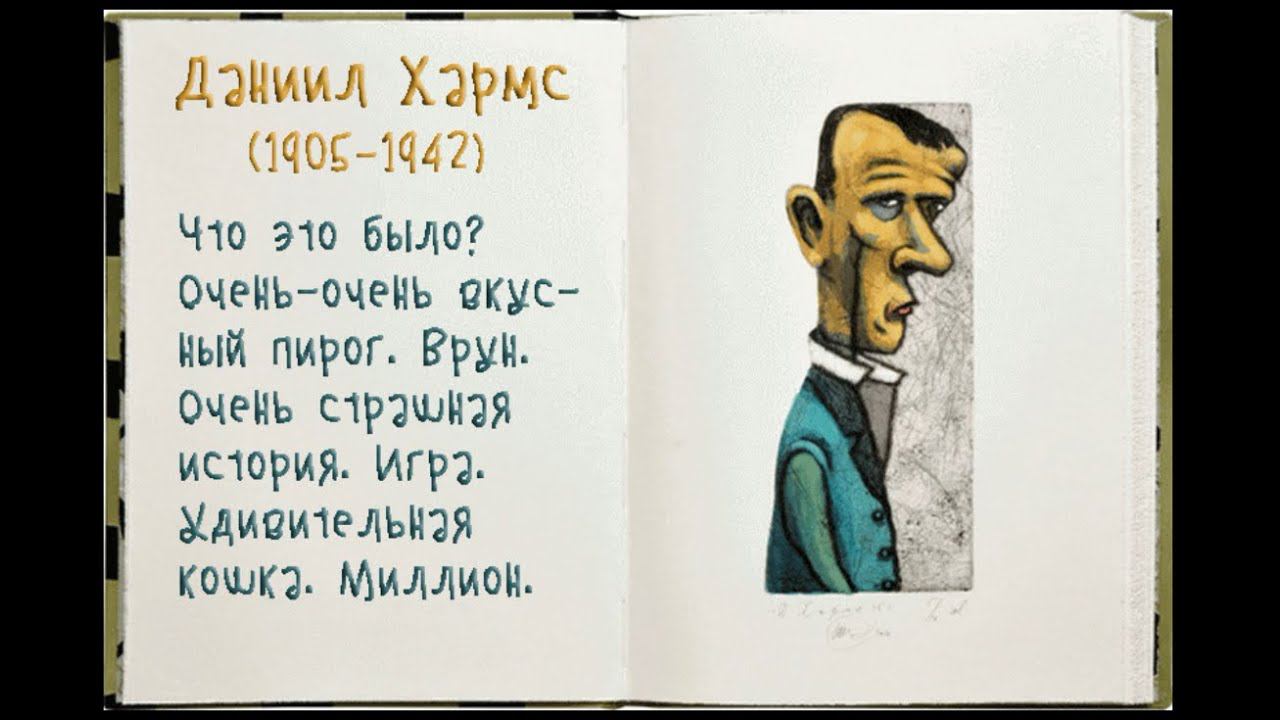 Даниил Хармс
(1905-1942)
Что это было?
Очень-очень вкус-
ный пирог. Врун.
Очень страшная
история. Игра.
Удивительная
кошка. Миллион.